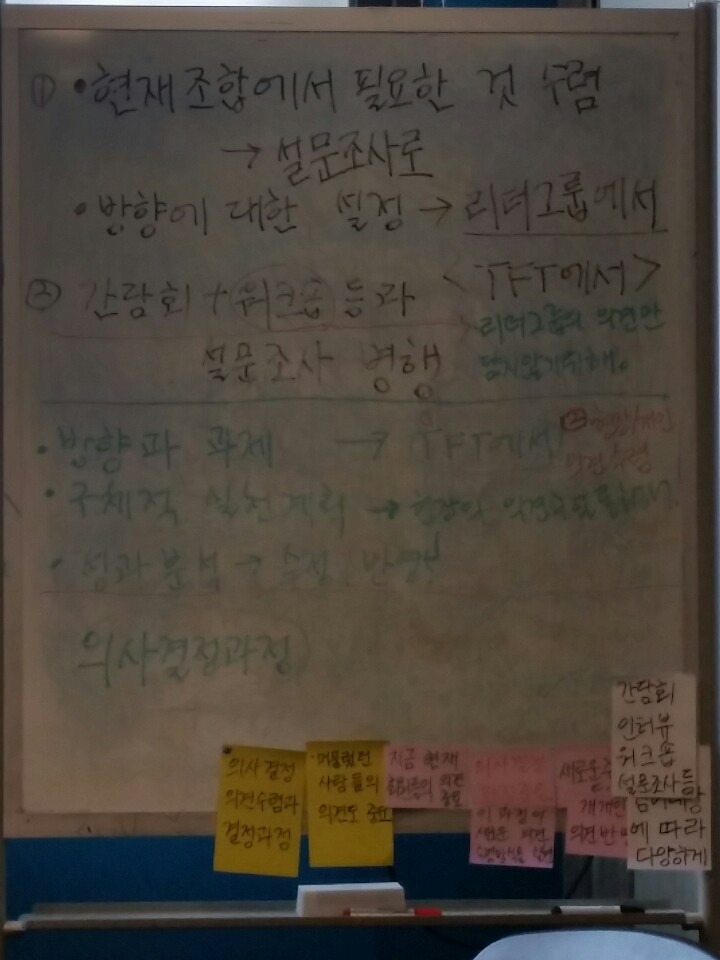 ① •현재조합에서 필요한 것 수렴
→ 설문조사로
• 방향에 대한 설정 → 리더그룹에서
② 간담회 + 워크숍 등과 <TFT에서>
리더그룹의 의견만
담지않기위해.
설문조사 병행
• 방향과 과제 → TFT에서
의견수렴
• 구체적 실천계획 → 현장의
• 성과분석 → 수정, 반영!
의사결정과정
의사결정
의견수렴과
결정과정
머물렀던
사람들의
의견도 중요
지금 현재
의견
중요
의사결정
이 과정이
새로운 의견
새로운
개개인
의견반영
간담회
인터뷰
워크숍
설문조사 등
에 따라
다양하게